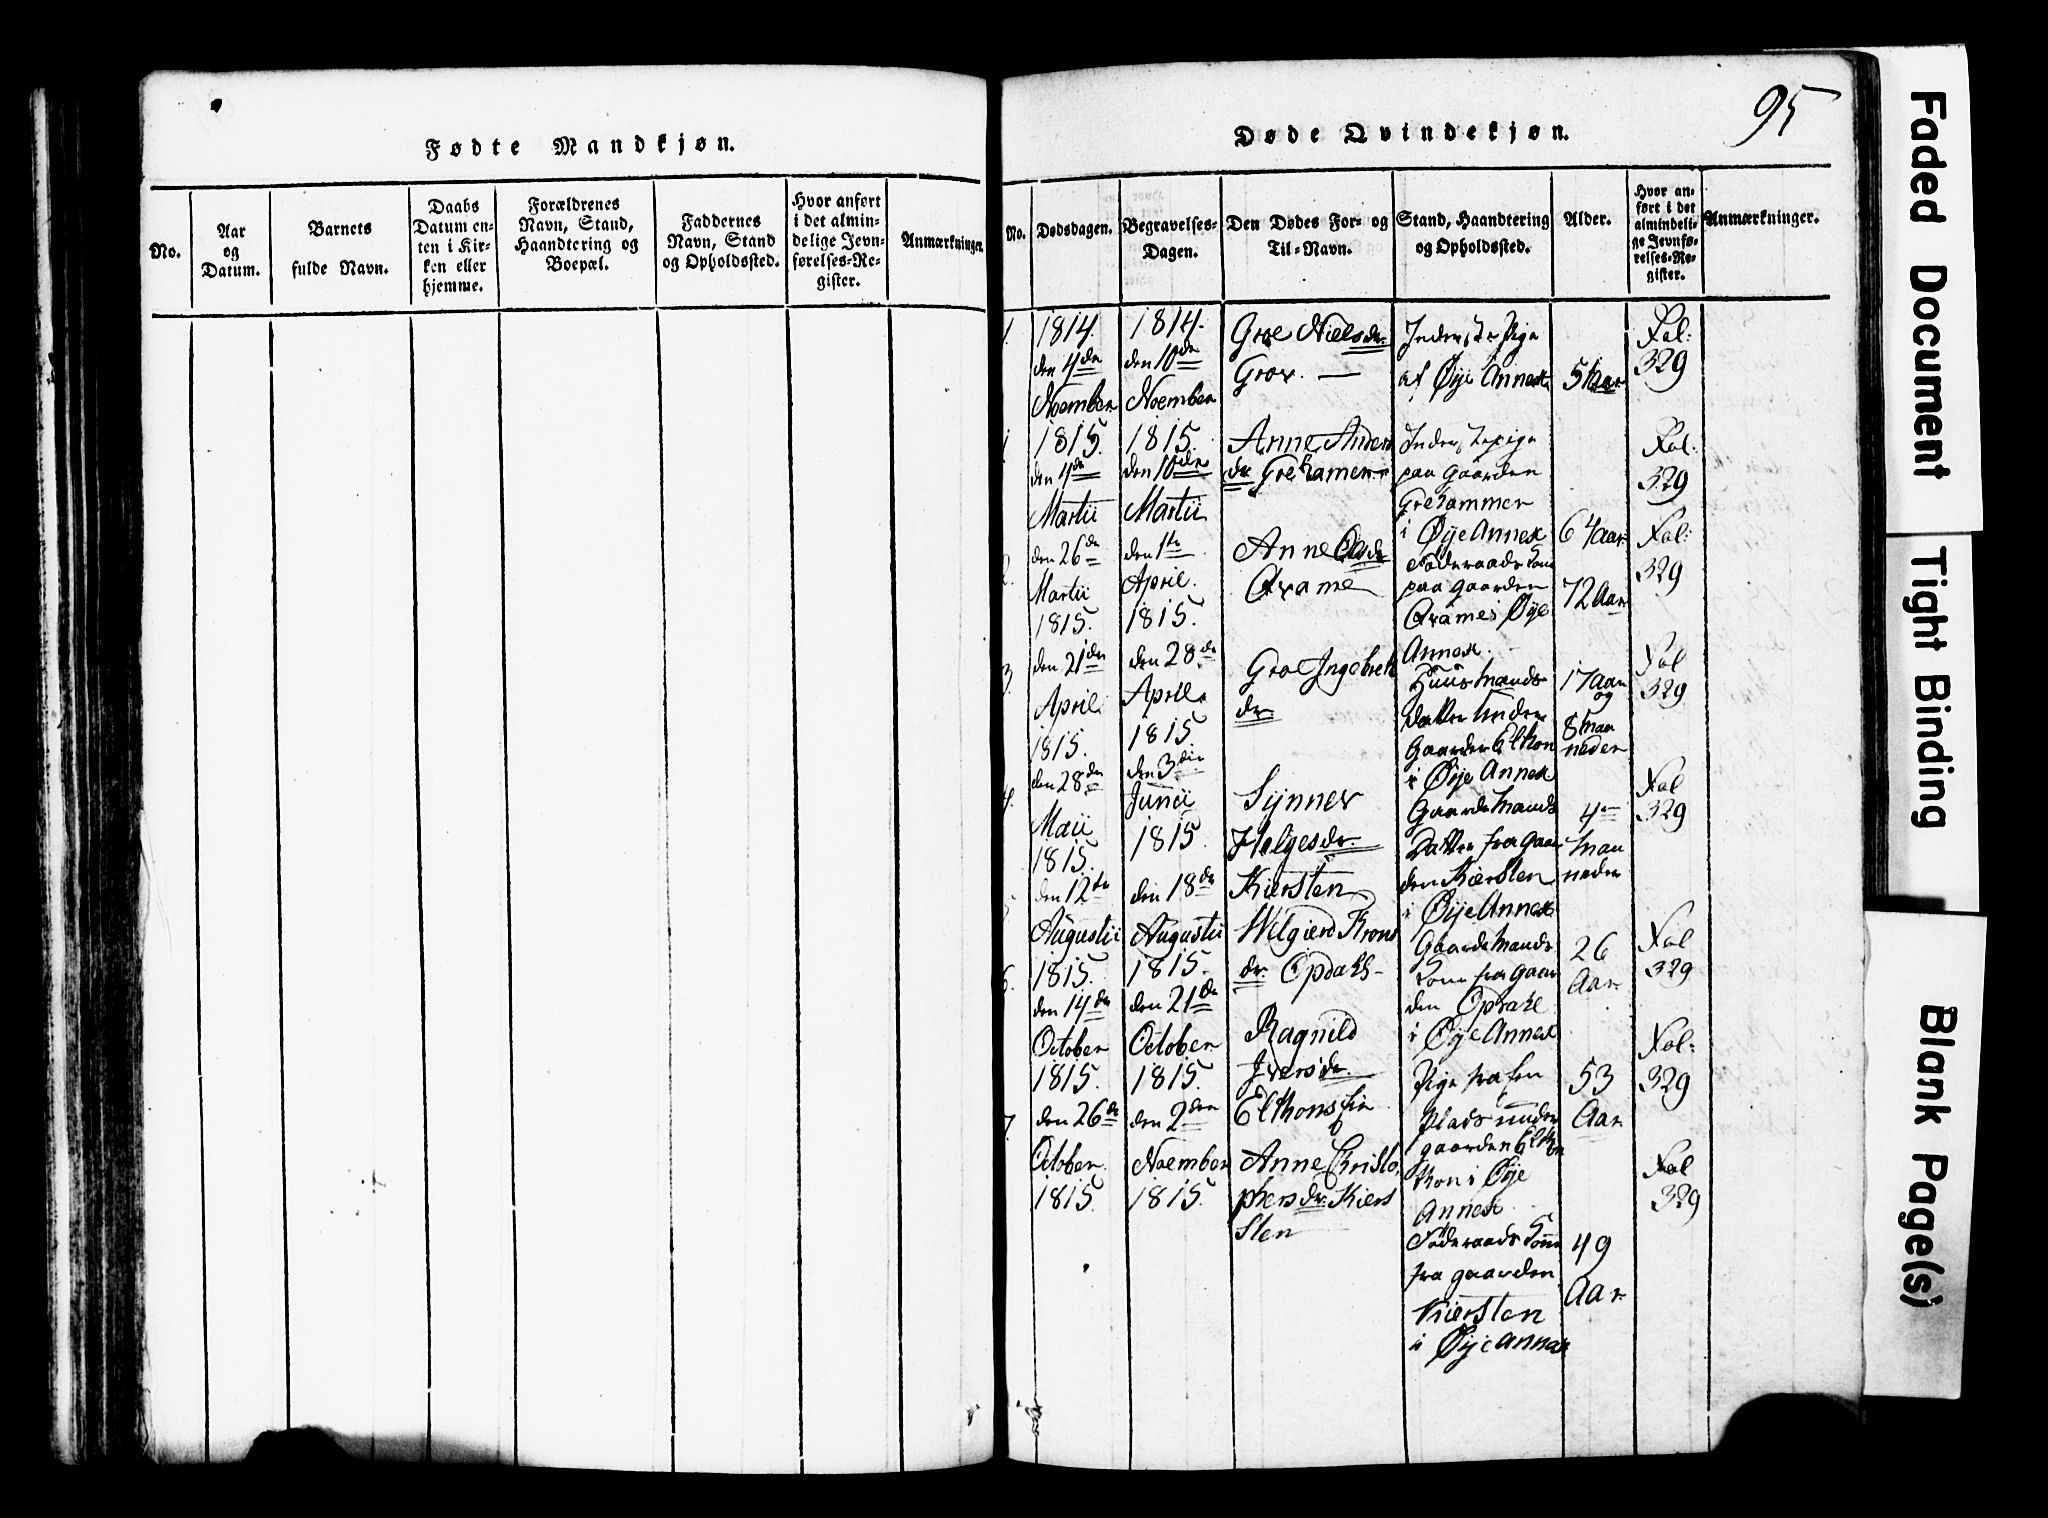 Fødte Mandkjøn.
No.
Aar
og
Datum.
Barnets
fulde Navn.
Daabs
Datum en-
ten i Kir-
ken eller
hjemme.
Forældrenes
Navn, Stand,
Haandtering og
Boepæl.
Faddernes
Navn, Stand
og Opholdssted.
Hvor anført
i det almin-
delige Jevn-
førelses-Re-
gister.
Anmærkninger.
95
Døde Qvindekjøn.
No.
Dødsdagen.
Begravelses-
Dagen.
Den Dødes For- og
Til-Navn.
Stand, Haandtering
og Opholdssted.
Alder.
Hvor an-
ført i det
almindeli-
ge Jevnfø-
relses-Re-
gister.
Anmærkninger.
1.
1814.
den 4de
Noember
1814.
den 10de
Noember
Groe Nielsdr.
Grov. —
Inderste Pige
af Øye Annex
Fol:
329
1
1815.
den 4de
Martii
1815.
den 10de
Martii
Anne Anders
dr. Grehamer
Inderstepige
paa gaarden
Grehammer
i Øye Annex
64 aar
Fol:
329
2.
den 26de
Martii
1815.
den 1te
April.
1815.
Anne
Qvame
Føderaads Kone
paa gaarden
Qvame i Øye
Annex.
72 Aar
Fol:
329
3
den 21de
April
1815.
den 28de
April.
1815
Groe Ingebrets
dr
Huusmands
Datter under
Gaarden Elthon
i Øye Annex
17 Aar
og
8 maa
neder
Fol
329
4.
den 28de
Maii
1815.
den 3die
Junii
1815.
Synnev
Helgesdr.
Kiersten
Gaardmands
Datter fra Gaar
den Kiersten
i Øye Annex
4
maa
neder
Fol
329
5
den 12te
Augustii
1815.
den 18de
Augustii
1815.
Wilgierd Trons
dr. Opdahl
Gaardmands
Kone fra Gaar
den Opdahl
i Øye Annex
26
Aar
Fol
329
6.
den 14de
October
1815.
den 21de
October
1815.
Ragnild
Iversdr.
Elthons Eie
Pige fra en
Plads under
gaarden Elt
hon i Øye
Annex
53
Aar
Fol:
329
7
den 26de
October.
1815.
den 2den
Noember
1815.
Anne Christo
phersdr. Kiers
ten
Føderaads Kone
fra gaarden
Kiersten
i Øye Annex
49
Aar
Fol
329
Faded Document
Tight Binding
Blank Page(s)